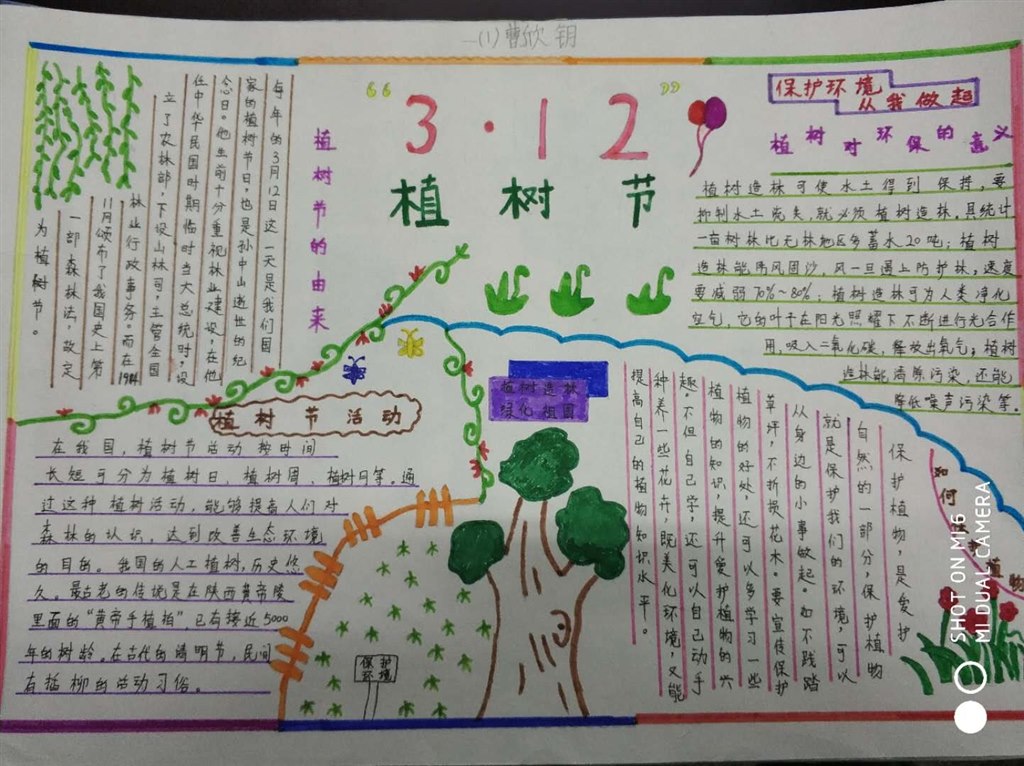 一(1)曹欣钥
“3·12”
植树节
植树节的由来
每年的3月12日这一天是我们国
家的植树节日,也是孙中山逝世的纪
念日。他生前十分重视林业建设,在他
任中华民国时期临时当大总统时,设
立了农林部,下设山林司,主管全国
林业行政事务。而在1984
11月颁布了我国史上第
一部森林法,故定
为植树节。
保护环境
从我做起
植树对环保的意义
植树造林可使水土得到保持,要
抑制水土流失,就必须植树造林。具统计
一亩树林比无林地区多蓄水20吨;植树
造林能防风固沙,风一旦遇上防护林,速度
要减弱70%~80%;植树造林可为人类净化
空气,它的叶子在阳光照耀下不断进行光合作
用,吸入二氧化碳,释放出氧气;植树
造林能清除污染,还能
降低噪声污染等。
植树节活动
在我国,植树节活动按时间
长短可分为植树日、植树周、植树月等。通
过这种植树活动,能够提高人们对
森林的认识,达到改善生态环境
的目的。我国的人工植树,历史悠
久。最古老的传说是在陕西黄帝陵
里面的“黄帝手植柏”,已有接近5000
年的树龄。在古代的清明节,民间
有插柳的活动习俗。
植树造林
绿化祖国
保护
环境
如何保护植物
保护植物,是爱护
自然的一部分,保护植物
就是保护我们的环境,可以
从身边的小事做起。如不践踏
草坪,不折损花木。要宣传保护
植物的好处,还可以多学习一些
植物的知识,提升爱护植物的兴
趣。不但自己学,还可以自己动手
种养一些花卉,既美化环境,又能
提高自己的植物知识水平。
SHOT ON MI 6
MI DUAL CAMERA